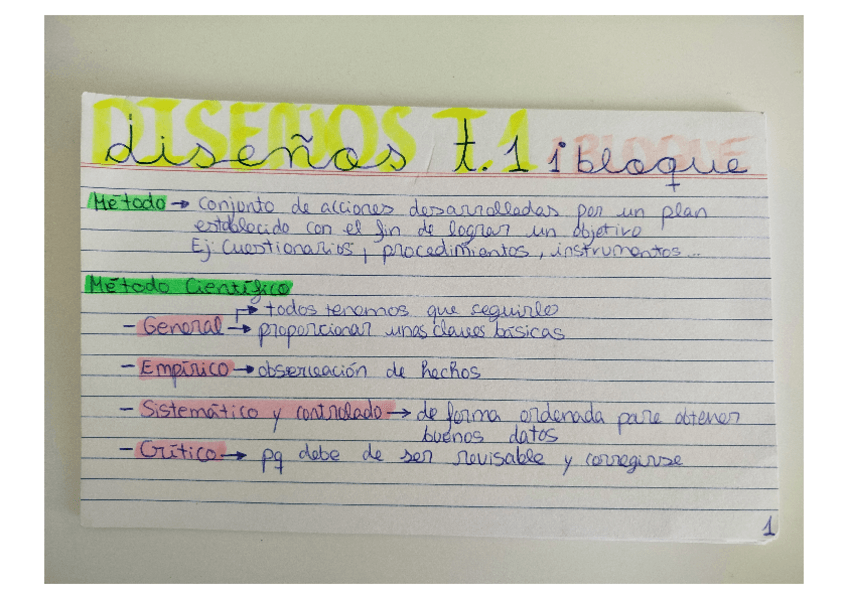 DISEÑOS T.1 1 BLOQUE
diseños t.1 1 bloque
Método → conjunto de acciones desarrolladas por un plan
establecido con el fin de lograr un objetivo
Ej: cuestionarios, procedimientos, instrumentos...
Método Científico
→ todos tenemos que seguirlo
- General → proporcionar unas claves básicas
- Empírico → observación de hechos
- Sistemático y controlado → de forma ordenada para obtener
buenos datos
- Crítico → pq debe de ser revisable y corregirse
1